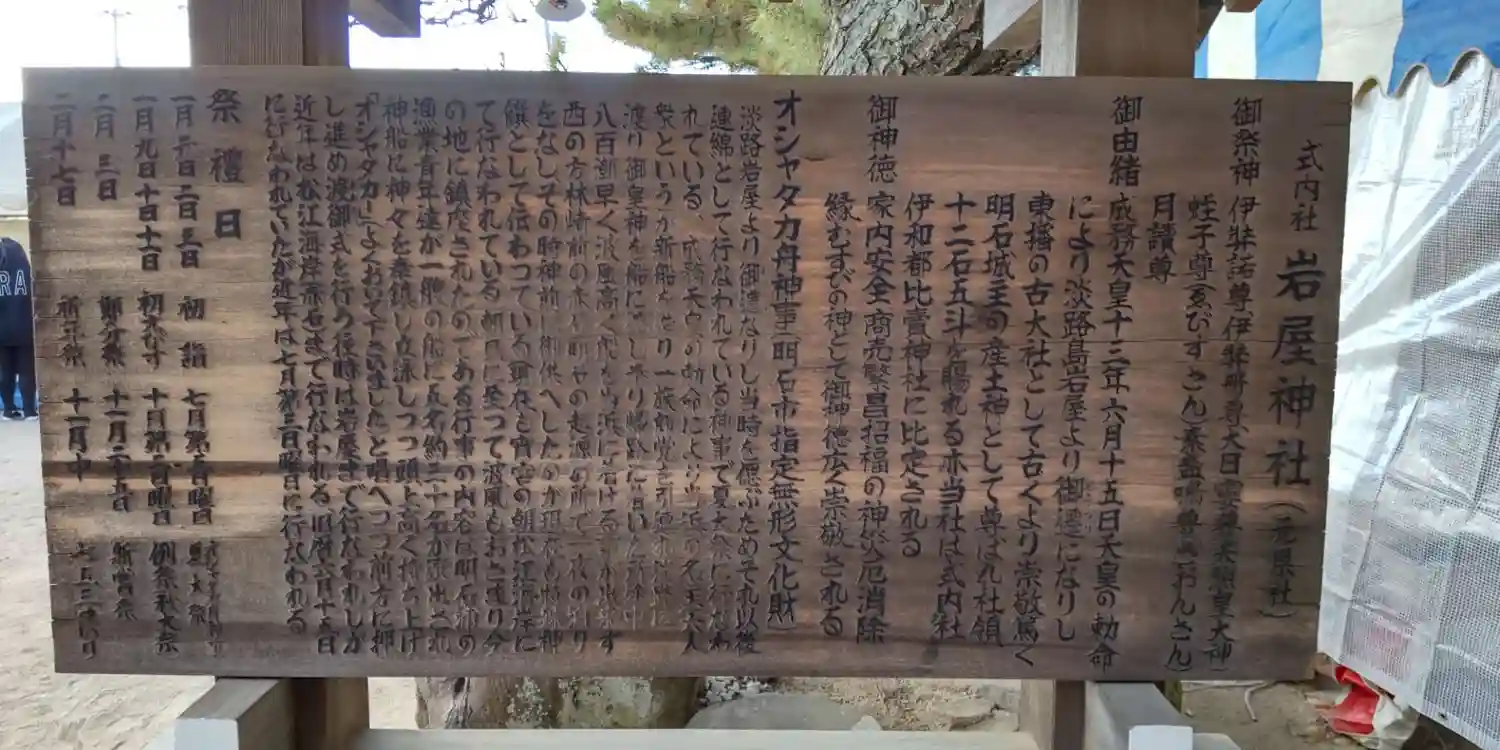 式内社 岩屋神社(元県社)
御祭神 伊弉諾尊、伊弉冊尊、大日孁尊(天照皇大神)
蛭子尊(ゑびすさん)素盞嗚尊(ぎおんさん)
月讀尊
御由緒 成務天皇十三年六月十五日天皇の勅命
により淡路島岩屋より御遷になりし
東播の古大社として古くより崇敬篤く
明石城主の産土神として尊ばれ社領
十二石五斗を賜れる亦当社は式内社
伊和都比賣神社に比定される
御神徳 家内安全商売繁昌招福の神災厄消除
縁むすびの神として御神徳広く崇敬される
オシャタカ舟神事(明石市指定無形文化財)
淡路岩屋より御遷なりし当時を偲ぶためそれ以後
連綿として行なわれている神事で夏大祭に行なわ
れている、成務天皇の勅命により当浜の名主夫人
祭というが新船をもり一族
渡り御皇神を船に 帰路に着いた所
八百潮早く波風高く船を当浜に着ける事が出来ず
西の方林崎前の赤石 の所で一夜の
をなし、その時神前に御供へしたのが
饌として伝わっている 宵宮の朝松江海岸に
て行なわれている 朝 に至って波風もおさまり今
の地に鎮座されたのである行事の内容は明石浦の
漁業青年達が一艘の船に 名約三十名が乗出され
神船に神々を奉鎮し立泳しつつ頭上高く持ち上げ
「オシャタカー」よくおいで下さいましたと唱へつつ前方に押
し進め渡御式を行う往時は岩屋まで行なわれしが
近年は松江海岸赤石まで行なわれる旧暦六月十五日
に行なわれていたが近年は七月第三日曜日に行なわれる
祭禮日
一月一日二日三日 初詣 七月第三日曜日 夏大祭
一月九日十日十一日 初ゑびす 十月第二日曜日 例祭秋大祭
二月三日 節分祭 十一月二十三日 新嘗祭
二月十七日 祈年祭 十一月中 七五三まいり